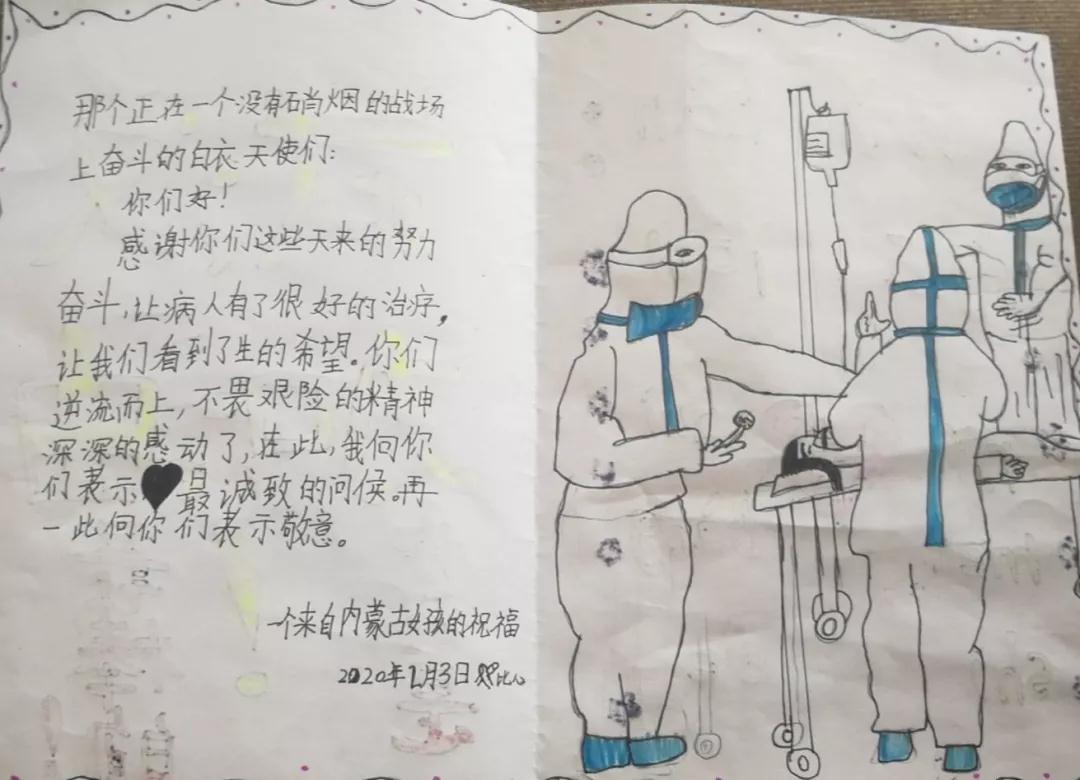 那个正在一个没有硝烟的战场
上奋斗的白衣天使们:
你们好!
感谢你们这些天来的努力
奋斗,让病人有了很好的治疗,
让我们看到了生的希望。你们
逆流而上,不畏艰险的精神
深深的感动了,在此,我向你
们表示最诚致的问候。再
一此向你们表示敬意。
一个来自内蒙古女孩的祝福
2020年2月3日比心